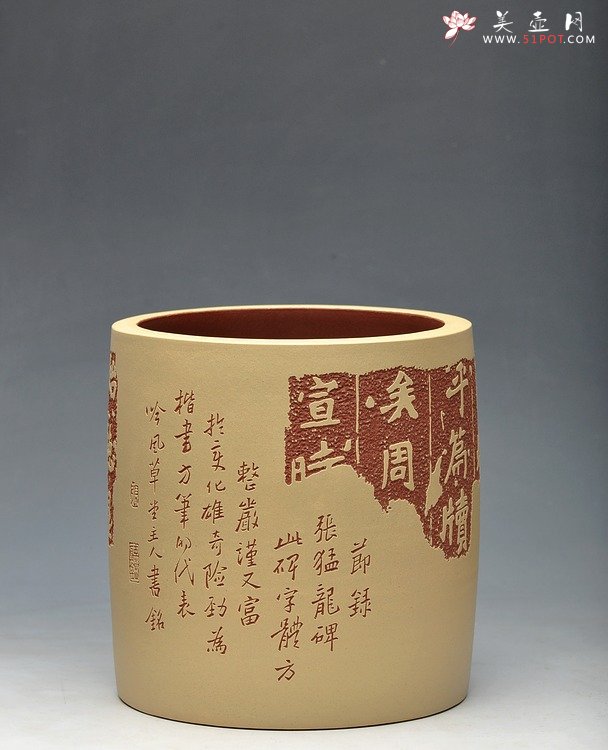 美壶网
WWW.51POT.COM
平篇牘
矣周
宣時
節録
張猛龍碑
此碑字體方
整嚴謹又富
於变化雄奇险勁為
楷書方筆的代表
吟風草堂主人書銘